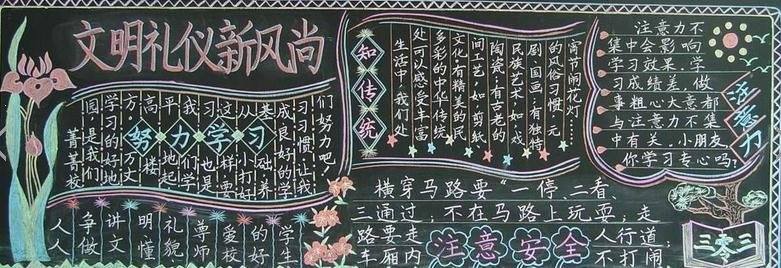 文明礼仪新风尚
菁菁校
园,是我们
学习的好地
方。万丈
高楼
平地起
我们学
习也是
这样,要
从小打好
基础,养
成良好的学
习习惯,让我
们努力吧!
努力学习
人人
争做
讲文
明懂
礼貌
尊师
爱校
的好
学生
知传统
生活中,我们处
处可以感受丰富
多彩的中华传统
文化,有精美的民
间工艺,如剪纸
陶瓷,有古老的
民族艺术,如戏
剧、国画,有独特
的风俗习惯,元
宵节闹花灯……
注意力不
集中会影响
学习效果,学
习成绩差,做
事粗心大意都
与注意力不集
中有关。小朋友,
你学习专心吗?
注意力
横穿马路要"一停、二看、
三通过,不在马路上玩耍;走
路要走人行道;
车厢内不打闹
注意安全
三零三